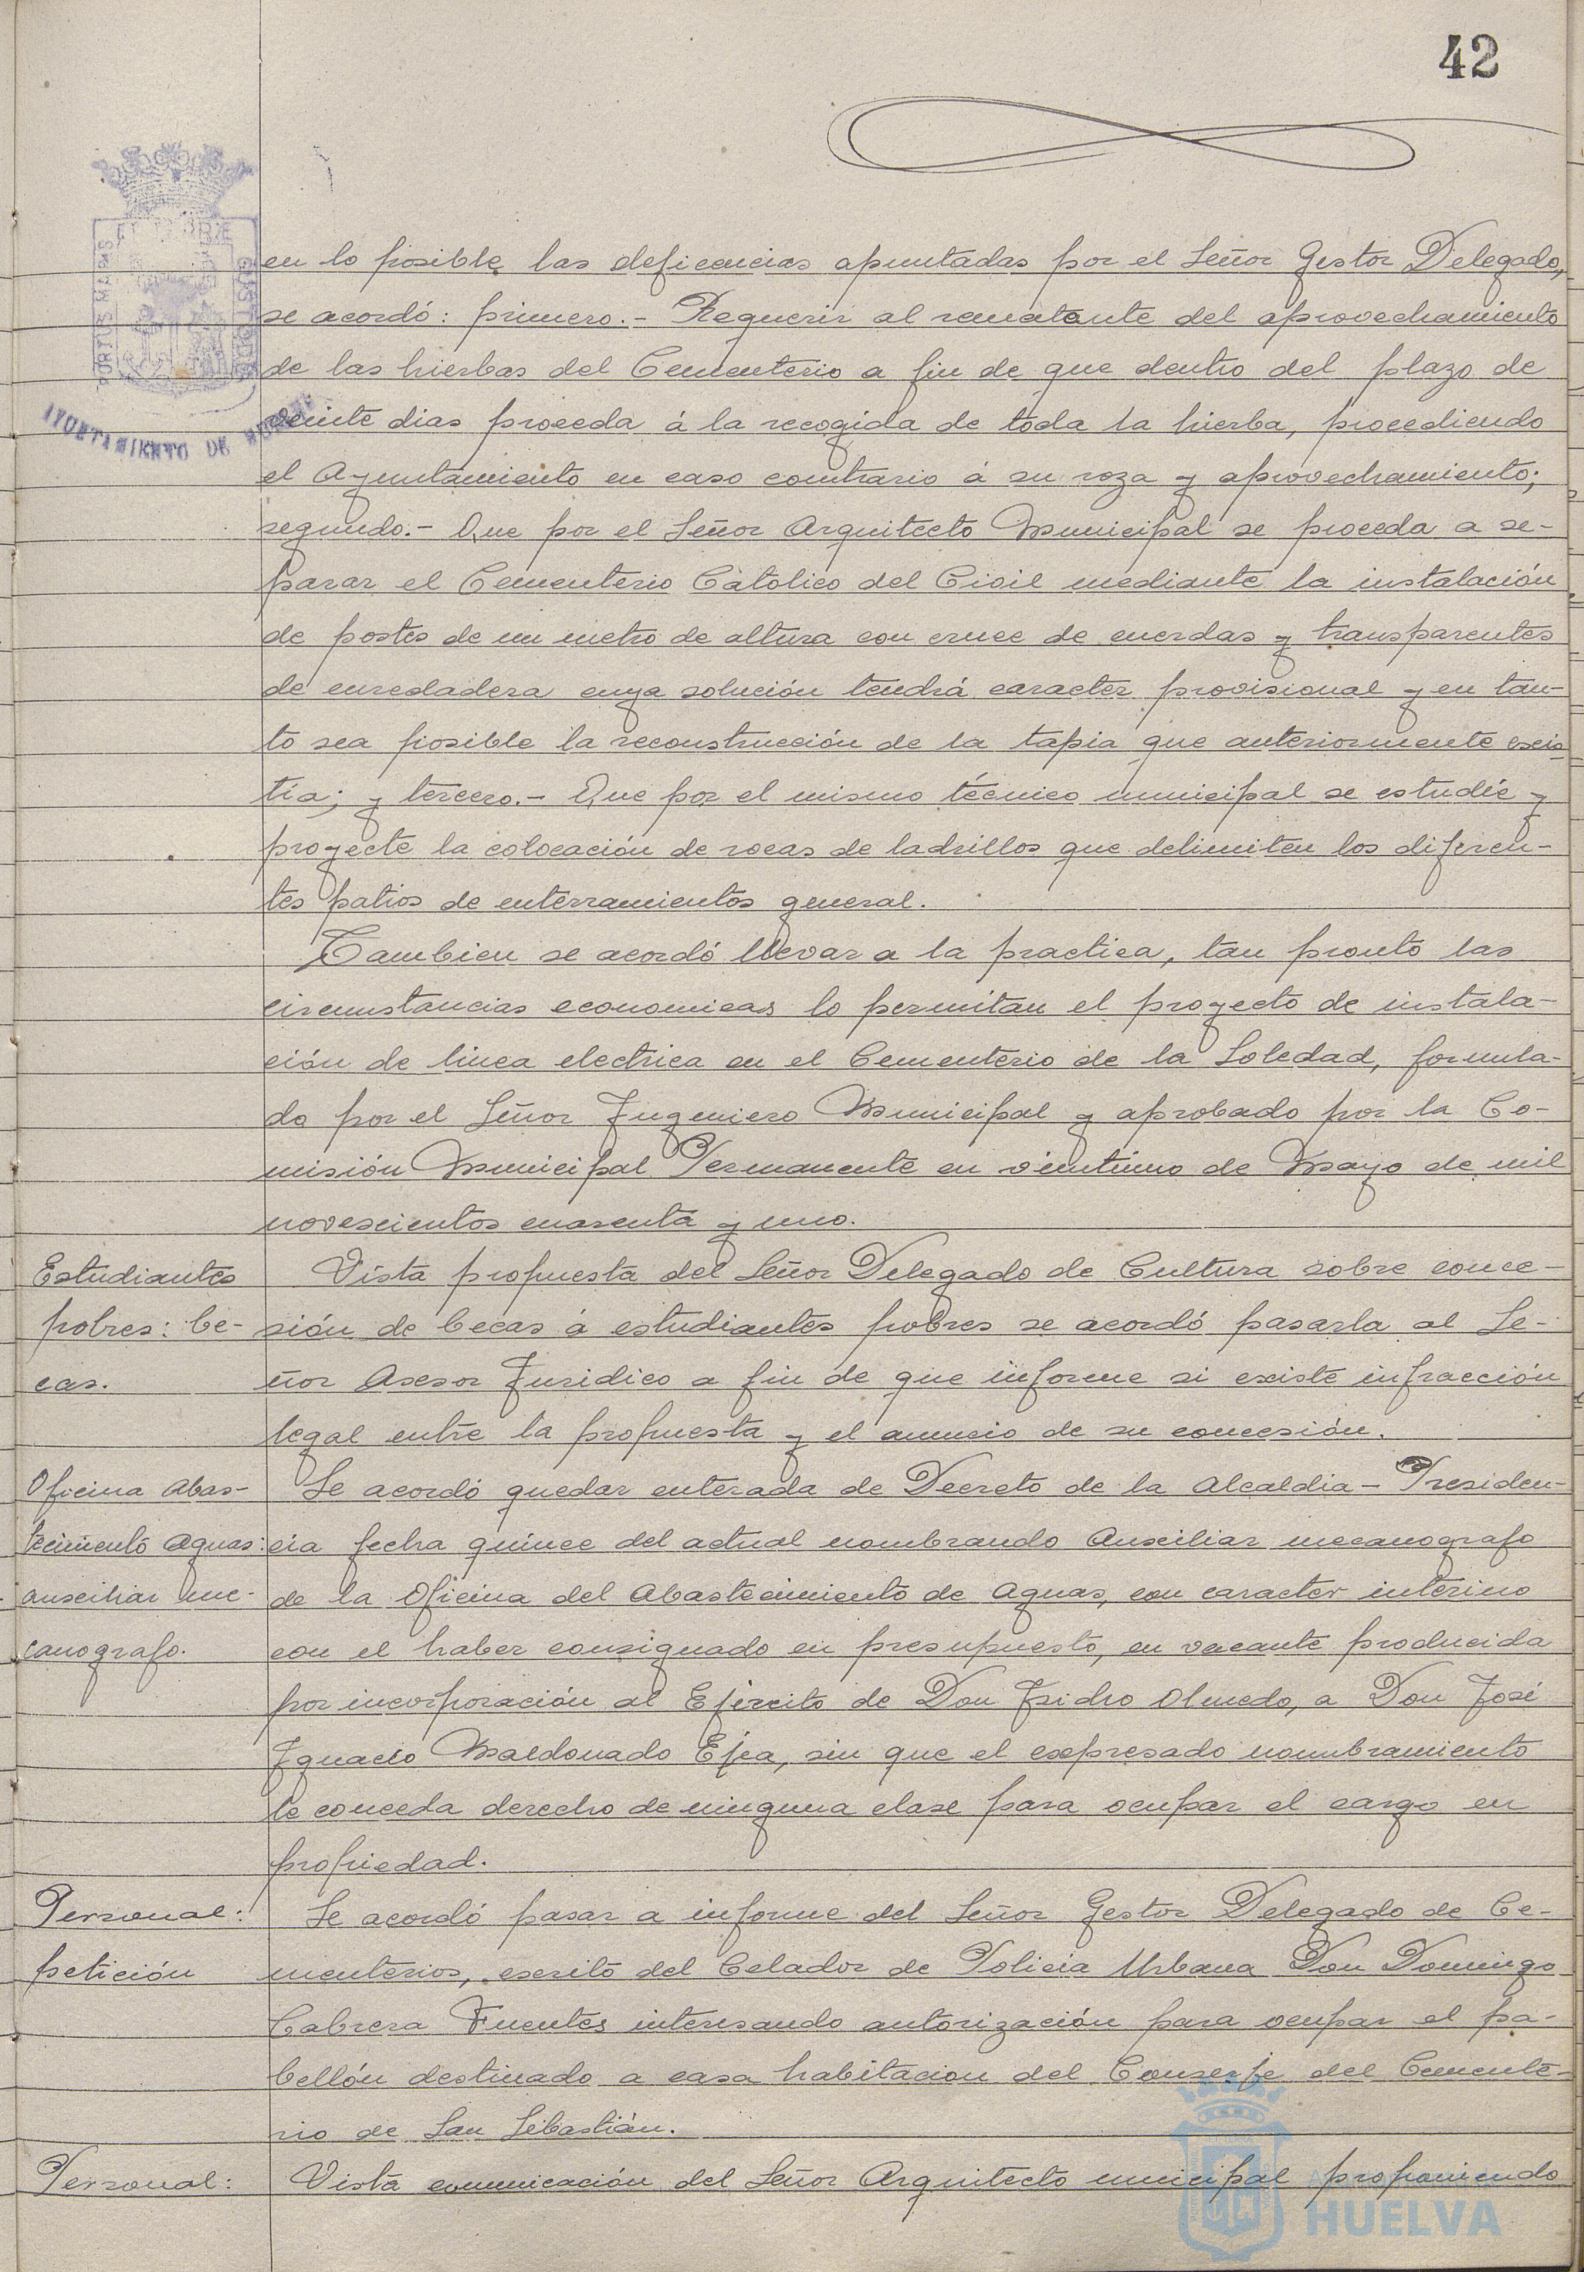 42
en lo posible las deficencias apuntadas por el Señor Gestor Delegado,
se acordó: primero.- Requerir al rematante del aprovechamiento
de las hierbas del Cementerio a fin de que dentro del plazo de
veinte dias proceda á la recogida de toda la hierba, procediendo
el Ayuntamiento en caso contrario á su roza y aprovechamiento;
segundo.- Que por el Señor Arquitecto Municipal se proceda a se-
parar el Cementerio Católico del Civil mediante la instalación
de postes de un metro de altura con cruce de cuerdas y transparentes
de enredadera cuya solución tendrá caracter provisional y en tan-
to sea posible la reconstrucción de la tapia que anteriormente exis-
tía; y tercero.- Que por el mismo técnico municipal se estudie y
proyecte la colocación de rocas de ladrillos que delimiten los diferen-
tes patios de enterramientos general.
Tambien se acordó llevar a la practica, tan pronto las
circunstancias economicas lo permitan el proyecto de instala-
ción de linea electrica en el Cementerio de la Soledad, formula-
do por el Señor Ingeniero Municipal y aprobado por la Co-
misión Municipal Permanente en vintiuno de Mayo de mil
novescientos cuarenta y uno.
Estudiantes
pobres: be-
cas.
Vista propuesta del Señor Delegado de Cultura sobre conce-
sión de becas á estudiantes pobres se acordó pasarla al Se-
ñor Asesor Juridico a fin de que informe si existe infracción
legal entre la propuesta y el anuncio de su concesión.
Oficina Abas-
tecimiento Aguas:
auxiliar me-
canografo.
Se acordó quedar enterada de Decreto de la Alcaldia-Presiden-
cia fecha quince del actual nombrando Auxiliar mecanografo
de la Oficina del Abastecimiento de Aguas, con caracter interino
con el haber consignado en presupuesto, en vacante producida
por incorporación al Ejército de Don Isidro Olmedo, a Don José
Ignacio Maldonado Ejea, sin que el expresado nombramiento
le conceda derecho de ninguna clase para ocupar el cargo en
propiedad.
Personal:
petición
Se acordó pasar a informe del Señor Gestor Delegado de Ce-
menterios, escrito del Celador de Policia Urbana Don Domingo
Cabrera Fuentes interesando autorización para ocupar el pa-
bellón destinado a casa habitacion del Conserje del Cemente-
rio de San Sebastián.
Personal:
Vista comunicación del Señor Arquitecto municipal proponiendo
PORTUS MARIS
CUSTODIA
AYUNTAMIENTO DE HUELVA
HUELVA